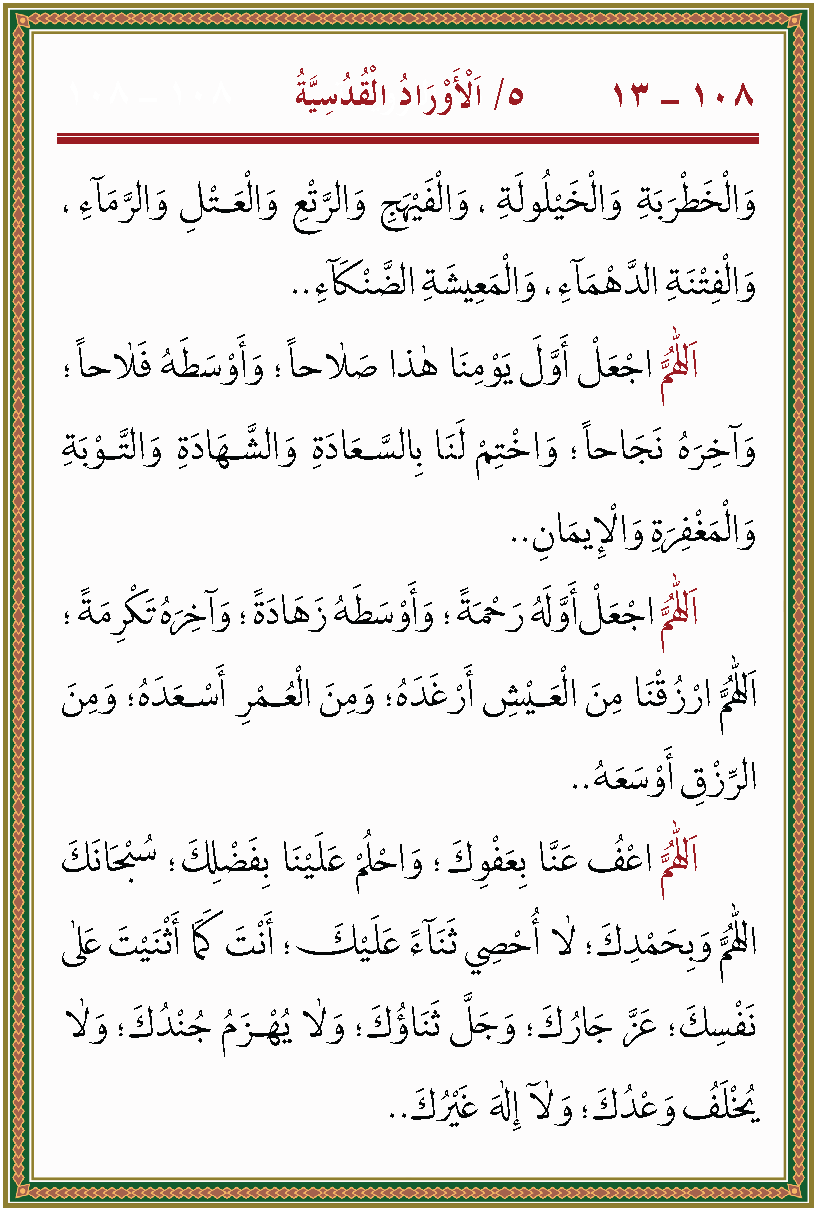 ١٠٨ – ١٣ ٥/ اَلْأَوْرَادُ الْقُدُسِيَّةُ
وَالْخَطْرَبَةِ وَالْخَيْلُولَةِ ، وَالْفَيْهَجِ وَالرَّتْعِ وَالْعَـتْلِ وَالرَّمَآءِ ،
وَالْفِتْنَةِ الدَّهْمَآءِ ، وَالْمَعِيشَةِ الضَّنْكَآءِ..
اَللّٰهُمَّ اجْعَلْ أَوَّلَ يَوْمِنَا هٰذا صَلٰاحاً ؛ وَأَوْسَطَهُ فَلٰاحاً ؛
وَآخِرَهُ نَجَاحاً ؛ وَاخْتِمْ لَنَا بِالسَّـعَادَةِ وَالشَّـهَادَةِ وَالتَّـوْبَةِ
وَالْمَغْفِرَةِ وَالْإِيمَانِ..
اَللّٰهُمَّ اجْعَلْ أَوَّلَهُ رَحْمَةً ؛ وَأَوْسَطَهُ زَهَادَةً ؛ وَآخِرَهُ تَكْرِمَةً ؛
اَللّٰهُمَّ ارْزُقْنَا مِنَ الْعَـيْشِ أَرْغَدَهُ ؛ وَمِنَ الْعُـمْرِ أَسْـعَدَهُ ؛ وَمِنَ
الرِّزْقِ أَوْسَعَهُ..
اَللّٰهُمَّ اعْفُ عَنَّا بِعَفْوِكَ ؛ وَاحْلُمْ عَلَيْنَا بِفَضْلِكَ ؛ سُبْحَانَكَ
اللّٰهُمَّ وَبِحَمْدِكَ ؛ لٰا أُحْصِي ثَنَآءً عَلَيْكَ ؛ أَنْتَ كَمَا أَثْنَيْتَ عَلٰى
نَفْسِكَ ؛ عَزَّ جَارُكَ ؛ وَجَلَّ ثَنَاؤُكَ ؛ وَلٰا يُهْـزَمُ جُنْدُكَ ؛ وَلٰا
يُخْلَفُ وَعْدُكَ ؛ وَلٰآ إِلٰهَ غَيْرُكَ..